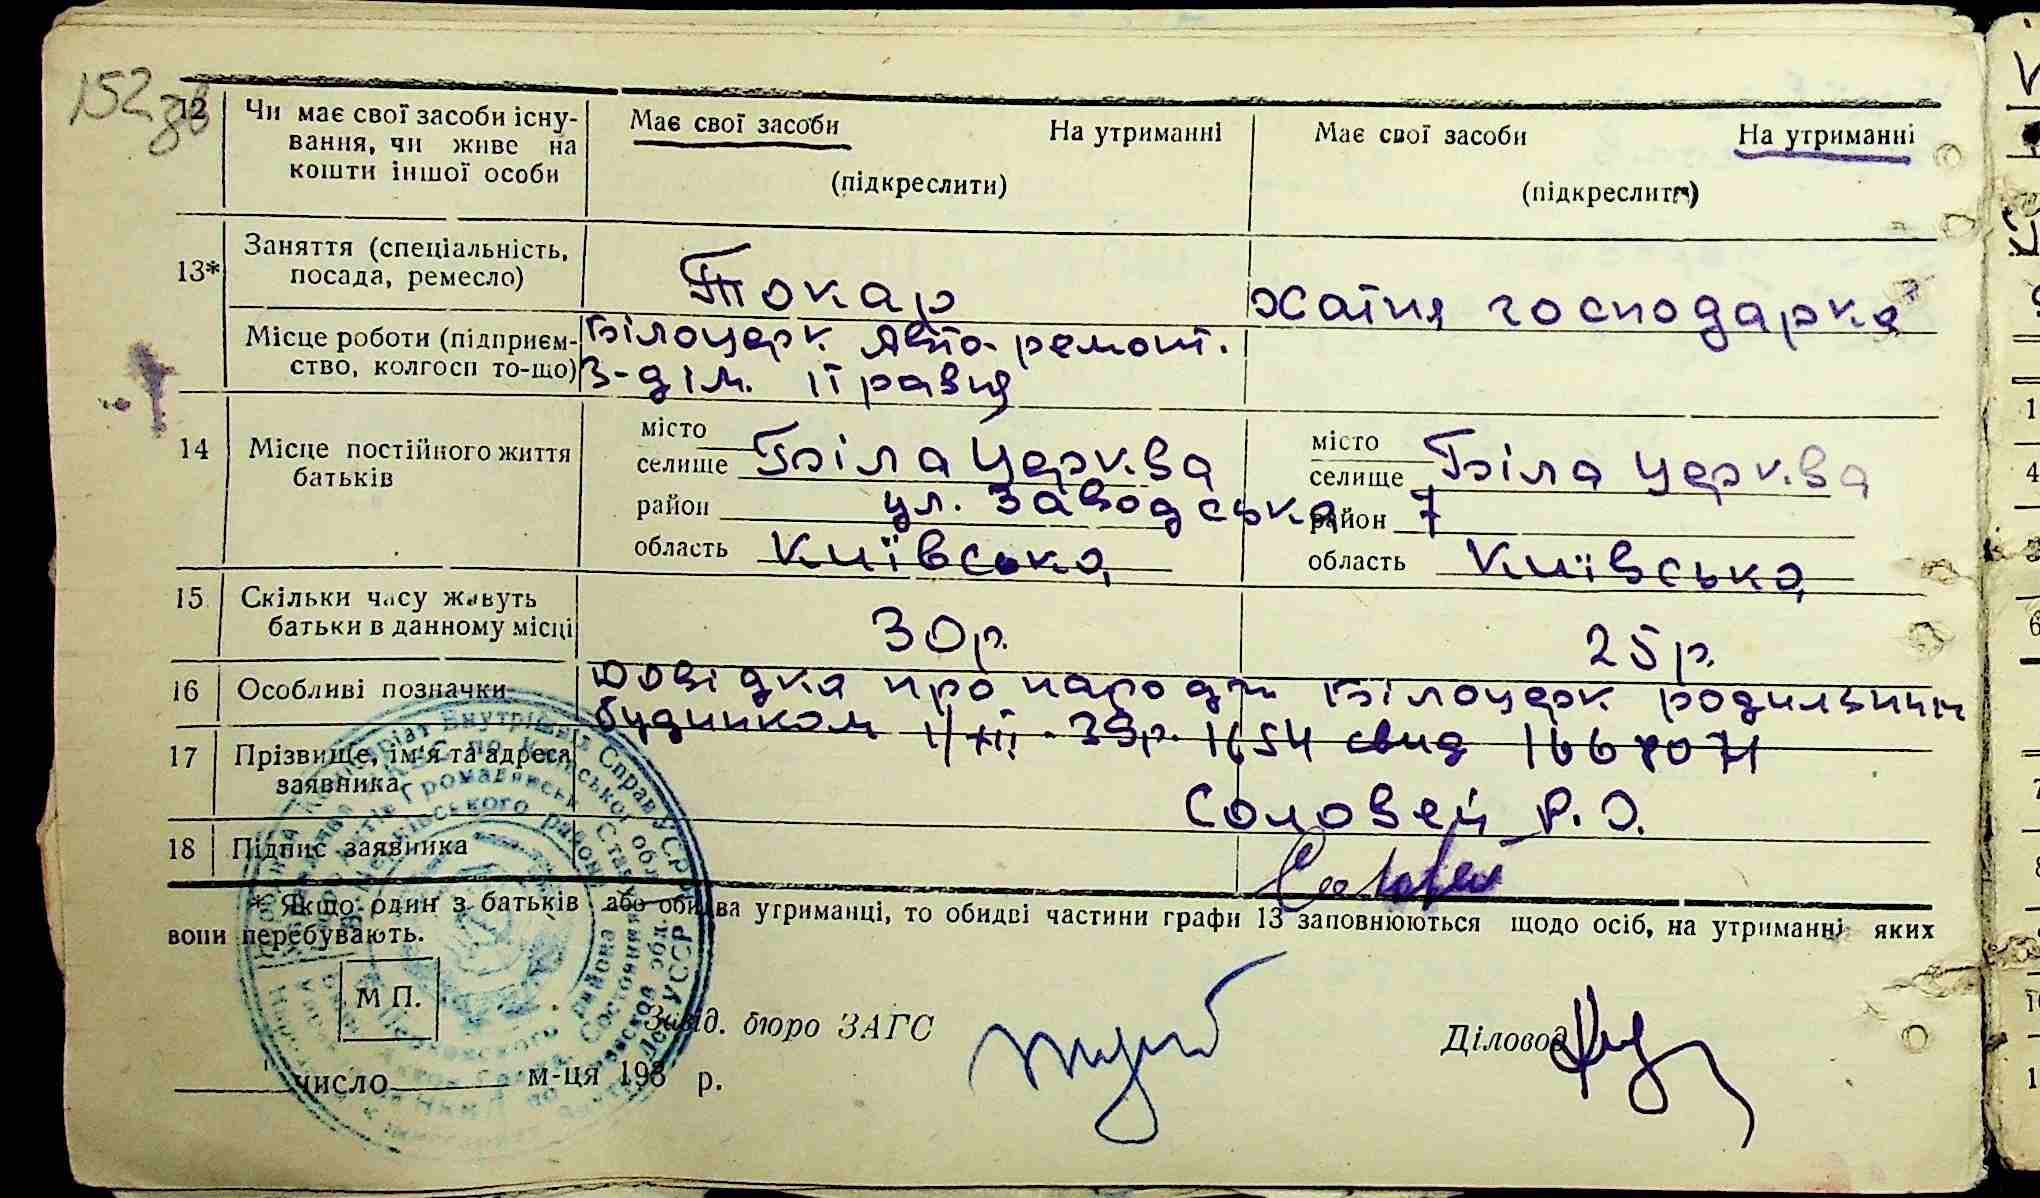 152 зв
12 Чи має свої засоби існу- Має свої засоби На утриманні Має свої засоби На утриманні
вання, чи живе на
кошти іншої особи (підкреслити) (підкреслити)
13* Заняття (спеціальність,
посада, ремесло) Токар хатня господарка
Місце роботи (підприєм- Білоцерк Авто-ремонт.
ство, колгосп то-що) З-д ім.
14 Місце постійного життя місто місто
батьків селище Біла Церква селище Біла Церква
район ул. Заводська 7 район
область Київська область Київська
15 Скільки часу живуть
батьки в данному місці 30 р. 25 р.
16 Особливі позначки Довідка про народж Білоцерк родильним
будинком 1/XII - 39 р. 1654 свид
17 Прізвище, ім'я та адреса
заявника Соловей Р. О.
18 Підпис заявника Соловей
* Якщо один з батьків або обидва утриманці, то обидві частини графи 13 заповнюються щодо осіб, на утриманні яких
вони перебувають.
М П.
Завід. бюро ЗАГС Діловод
число м-ця 193 р.